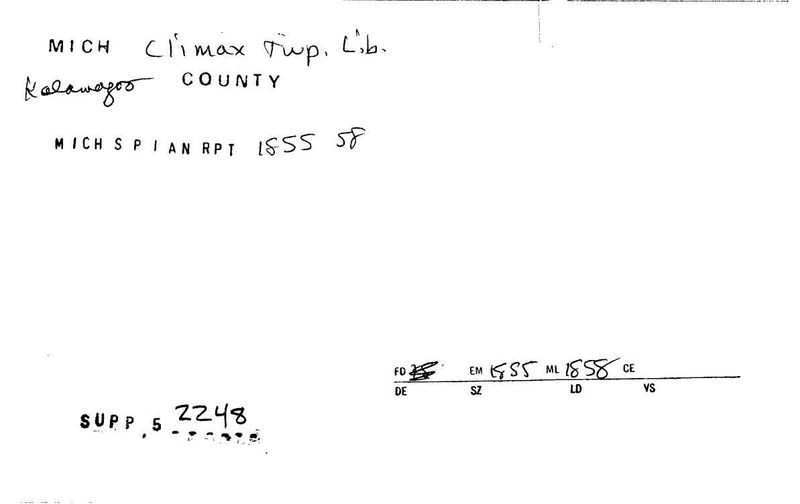 MICH Climax Twp. Lib.
Kalamazoo COUNTY
MICH S P I AN RPT 1855 58
FD EM 1855 ML 1858 CE
DE SZ LD VS
SUPP. 5 2248